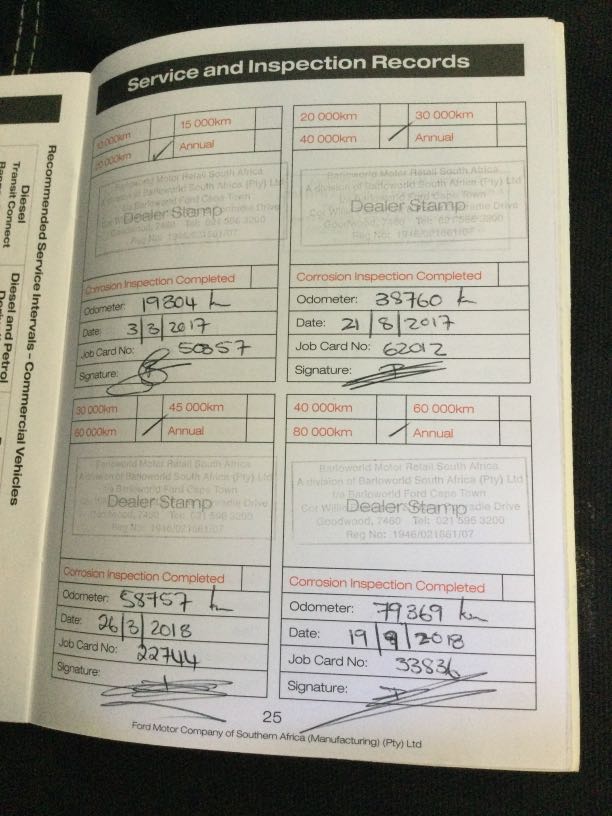 Service and Inspection Records
10 000km
15 000km
20 000km
Annual
Barloworld Motor Retail South Africa
A division of Barloworld South Africa (Pty) Ltd
t/a Barloworld Ford Cape Town
Dealer Stamp
Goodwood, 7460 Tel: 021 596 3200
Reg No: 1946/021661/07
Corrosion Inspection Completed
Odometer: 19304 km
Date: 3/3/2017
Job Card No: 50857
Signature:
20 000km
30 000km
40 000km
Annual
Barloworld Motor Retail South Africa
A division of Barloworld South Africa (Pty) Ltd
Dealer Stamp
Goodwood, 7460 Tel: 021 596 3200
Reg No: 1946/021661/07
Corrosion Inspection Completed
Odometer: 38760 km
Date: 21/8/2017
Job Card No: 62012
Signature:
30 000km
45 000km
60 000km
Annual
Barloworld Motor Retail South Africa
A division of Barloworld South Africa (Pty) Ltd
t/a Barloworld Ford Cape Town
Dealer Stamp
Goodwood, 7460 Tel: 021 596 3200
Reg No: 1946/021661/07
Corrosion Inspection Completed
Odometer: 58757 km
Date: 26/3/2018
Job Card No: 22744
Signature:
40 000km
60 000km
80 000km
Annual
Barloworld Motor Retail South Africa
A division of Barloworld South Africa (Pty) Ltd
t/a Barloworld Ford Cape Town
Dealer Stamp
Goodwood, 7460 Tel: 021 596 3200
Reg No: 1946/021661/07
Corrosion Inspection Completed
Odometer: 79369 km
Date: 19/9/2018
Job Card No: 33836
Signature:
25
Ford Motor Company of Southern Africa (Manufacturing) (Pty) Ltd
Recommended Service Intervals - Commercial Vehicles
Diesel
Transit Connect
Diesel and Petrol